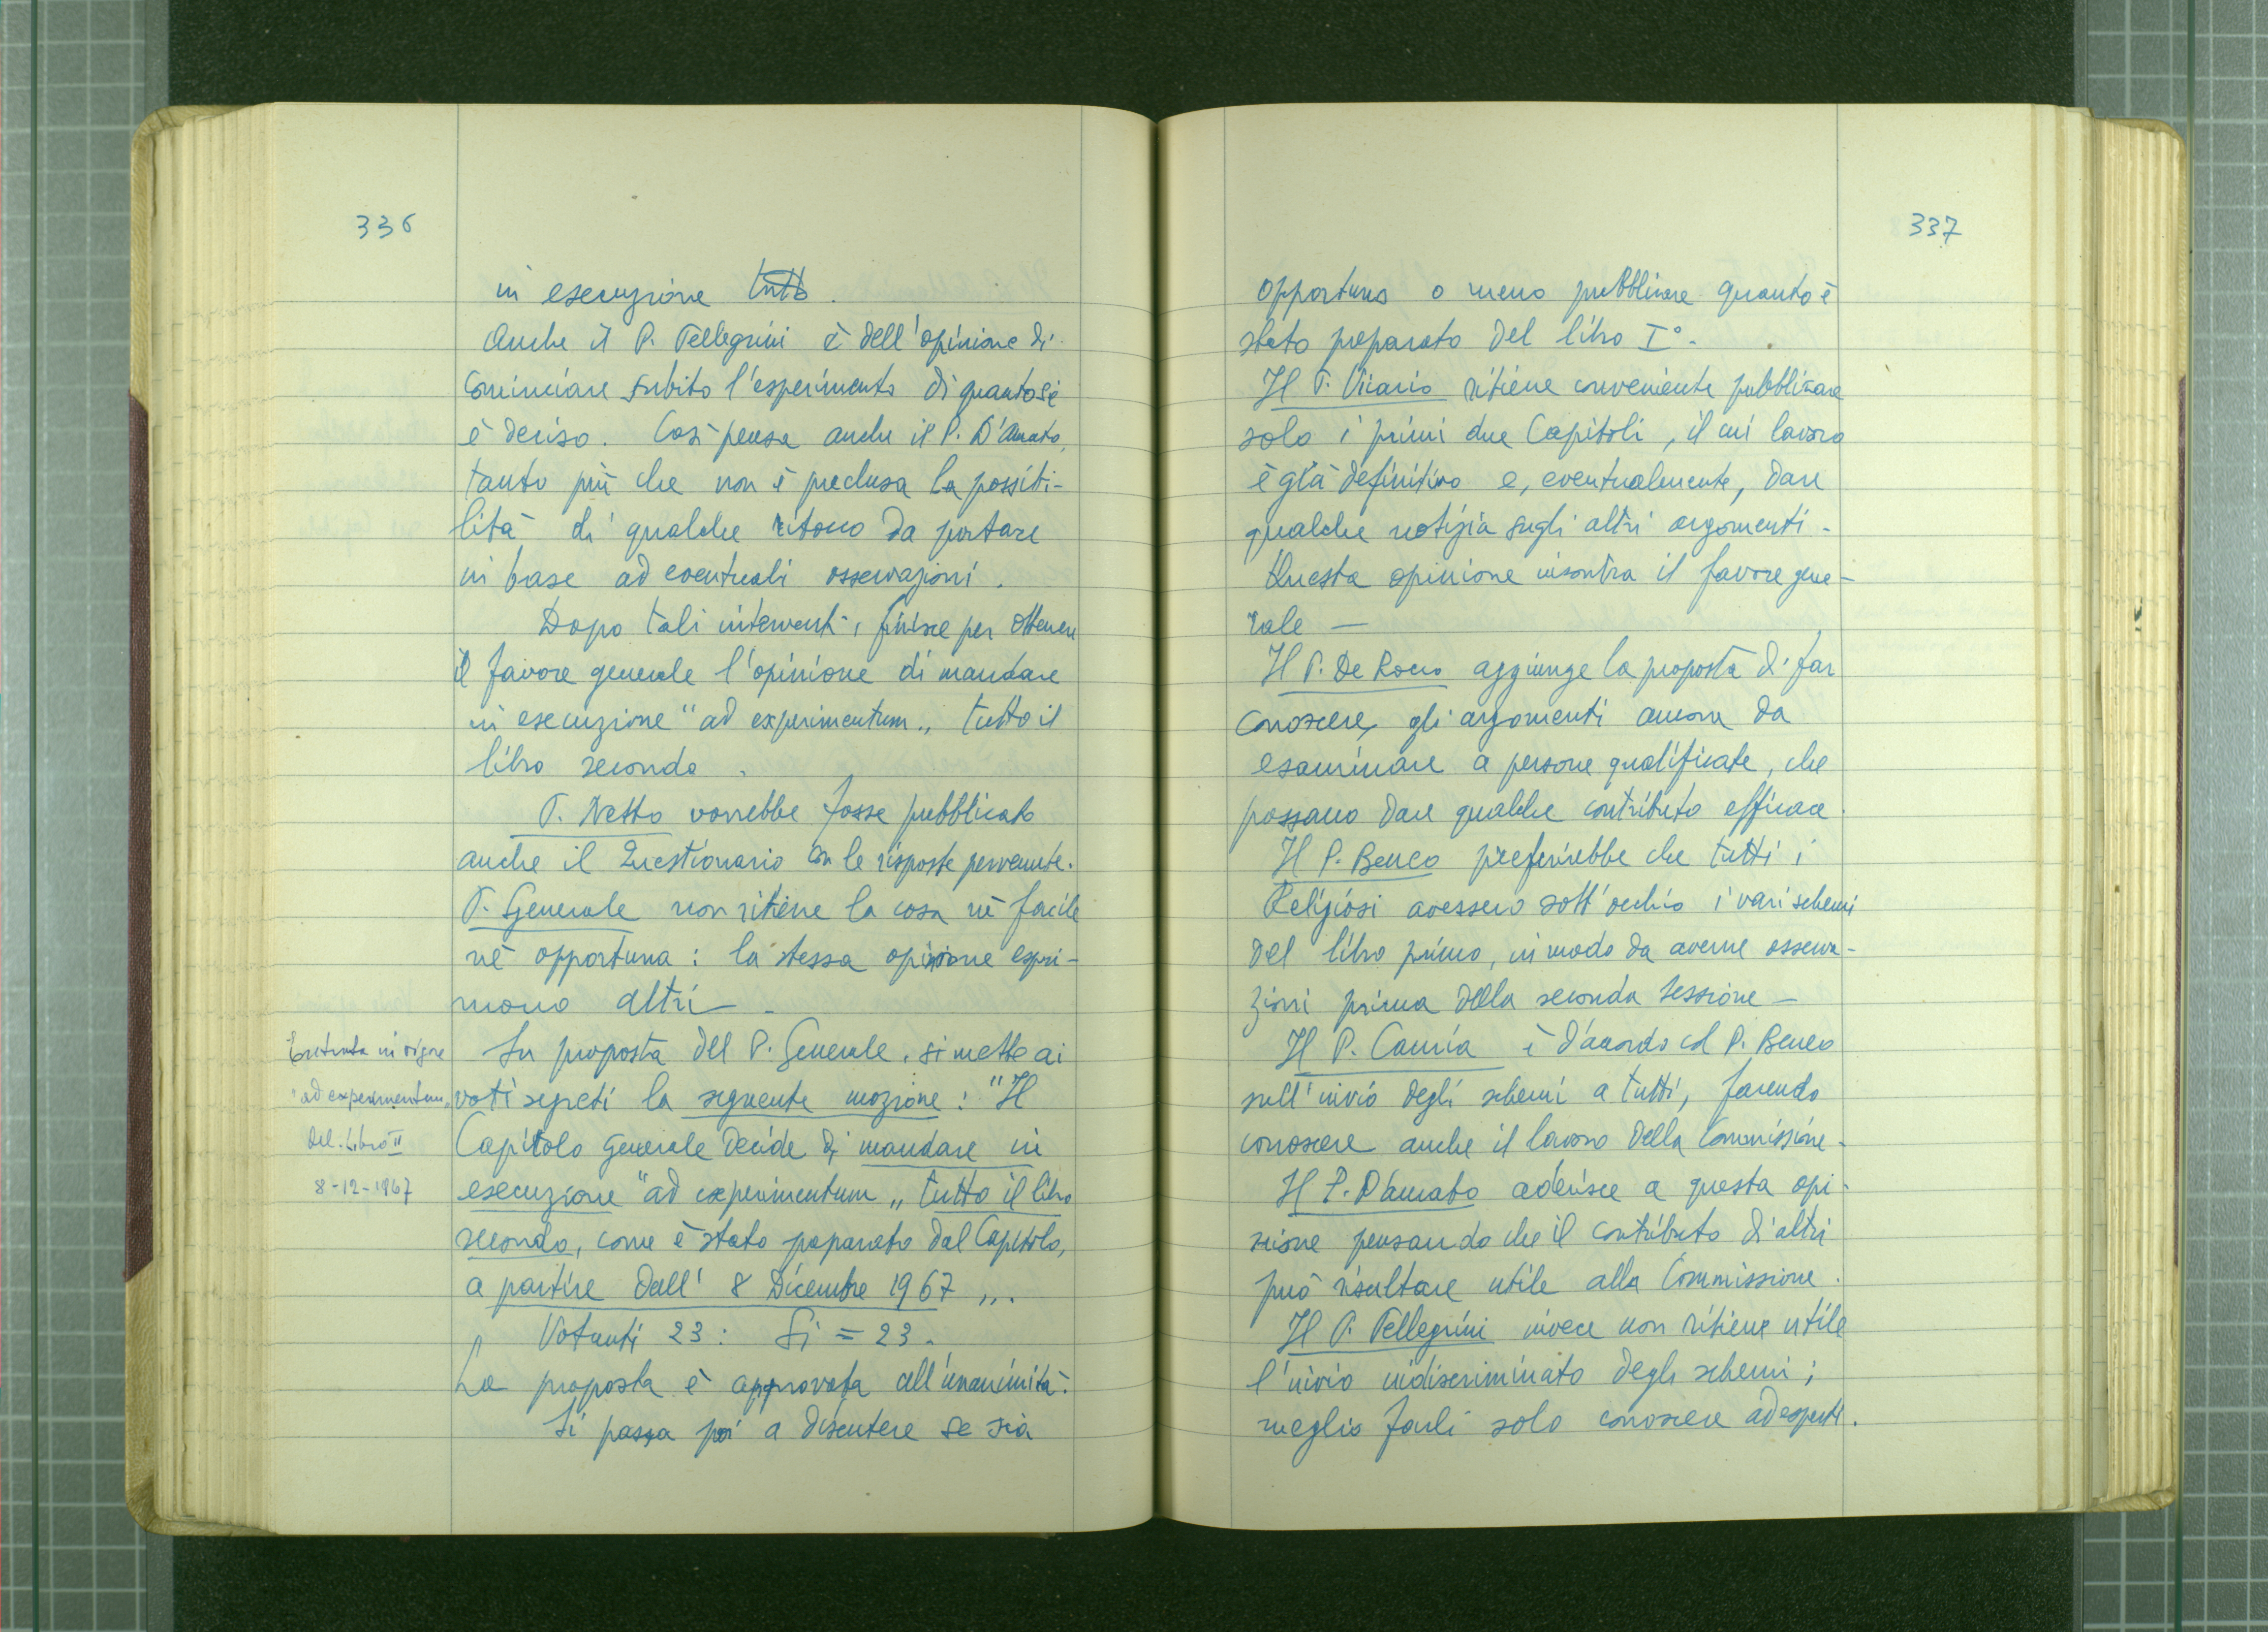 336
in esecuzione tutto.
Anche il P. Pellegrini è dell'opinione di
cominciare subito l'esperimento di quanto si
è deciso. Così pensa anche il P. D'Amato,
tanto più che non è preclusa la possibi-
lità di qualche ritocco da portare
in base ad eventuali osservazioni.
Dopo tali interventi, finisce per ottenere
il favore generale l'opinione di mandare
in esecuzione "ad experimentum" tutto il
libro secondo.
P. Netto vorrebbe fosse pubblicato
anche il Questionario con le risposte pervenute.
P. Generale non ritiene la cosa nè facile
nè opportuna: la stessa opinione espri-
mono altri -
Su proposta del P. Generale, si mette ai
voti segreti la seguente mozione: "Il
Capitolo Generale decide di mandare in
esecuzione "ad experimentum" tutto il libro
secondo, come è stato preparato dal Capitolo,
a partire dall' 8 Dicembre 1967".
Votanti 23: Si = 23.
La proposta è approvata all'unanimità.
Si passa poi a discutere se sia
Entrata in vigore
"ad experimentum"
del Libro II
8-12-1967
337
opportuno o meno pubblicare quanto è
stato preparato del libro I°.
Il P. Vicario ritiene conveniente pubblicare
solo i primi due Capitoli, il cui lavoro
è già definitivo e, eventualmente, dare
qualche notizia sugli altri argomenti -
Questa opinione incontra il favore gene-
rale -
Il P. De Rocco aggiunge la proposta di far
conoscere gli argomenti ancora da
esaminare a persone qualificate, che
possano dare qualche contributo efficace.
Il P. Beneo preferirebbe che tutti i
Religiosi avessero sott'occhio i vari schemi
del libro primo, in modo da averne osserva-
zioni prima della seconda sessione -
Il P. Cauria è d'accordo col P. Beneo
sull'invio degli schemi a tutti, facendo
conoscere anche il lavoro della Commissione -
Il P. D'Amato aderisce a questa opi-
nione pensando che il contributo di altri
può risultare utile alla Commissione.
Il P. Pellegrini invece non ritiene utile
l'invio indiscriminato degli schemi;
meglio farli solo conoscere ad esperti.